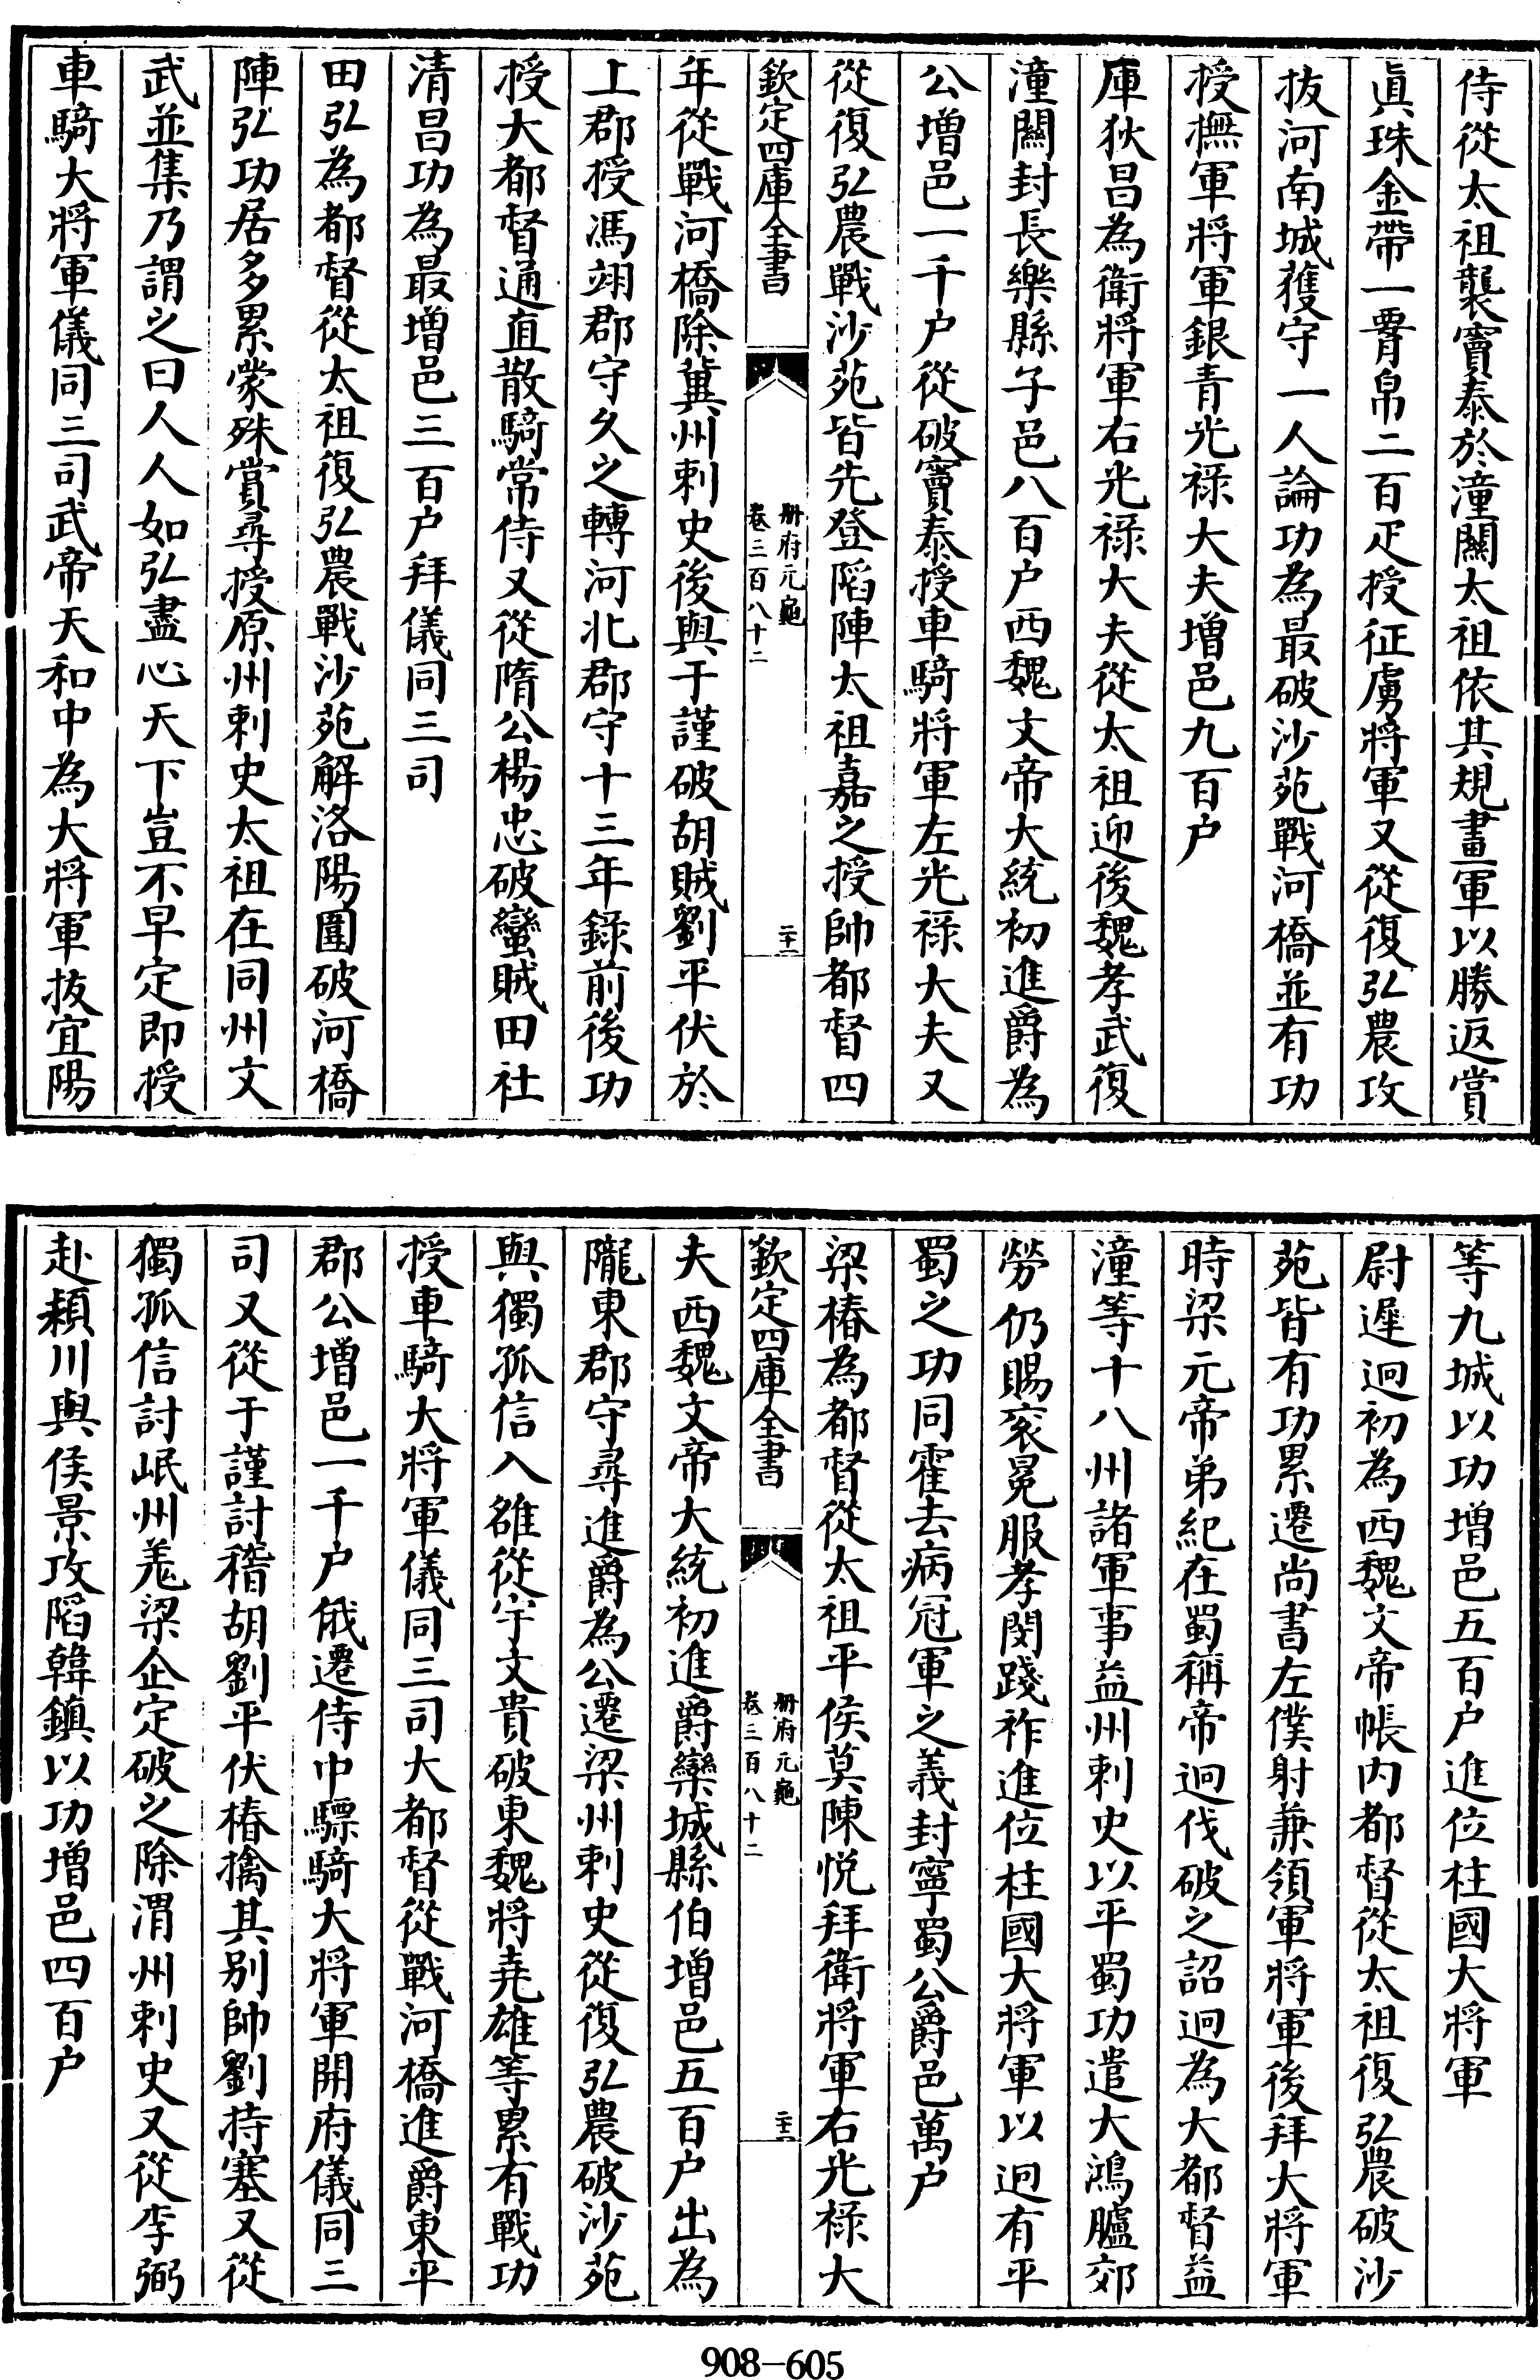 侍從太祖襲竇泰於潼關太祖依其規畫軍以勝返賞
眞珠金帶一䙅帛二百疋授征虜將軍又從復弘農攻
拔河南城獲守一人論功為最破沙苑戰河橋並有功
授撫軍將軍銀青光祿大夫增邑九百户
庫狄昌為衛將軍右光禄大夫從太祖迎後魏孝武復
潼關封長樂縣子邑八百户西魏文帝大統初進爵為
公增邑一千户從破竇泰授車騎將軍左光祿大夫又
從復弘農戰沙苑皆先登陷陣太祖嘉之授帥都督四
欽定四庫全書
册府元龜
卷三百八十二
二十一
年從戰河橋除冀州刺史後與于謹破胡賊劉平伏於
上郡授馮翊郡守久之轉河北郡守十三年錄前後功
授大都督通直散騎常侍又從隋公楊忠破蠻賊田社
清昌功為最增邑三百户拜儀同三司
田弘為都督從太祖復弘農戰沙苑解洛陽圍破河橋
陣弘功居多累蒙殊賞尋授原州刺史太祖在同州文
武並集乃謂之曰人人如弘盡心天下豈不早定即授
車騎大將軍儀同三司武帝天和中為大將軍拔宜陽
等九城以功增邑五百户進位柱國大將軍
尉遲迥初為西魏文帝帳内都督從太祖復弘農破沙
苑皆有功累遷尚書左僕射兼領軍將軍後拜大將軍
時梁元帝弟紀在蜀稱帝迥伐破之詔迥為大都督益
潼等十八州諸軍事益州刺史以平蜀功遣大鴻臚郊
勞仍賜衮冕服孝閔踐祚進位柱國大將軍以迥有平
蜀之功同霍去病冠軍之義封寧蜀公爵邑萬户
梁椿為都督從太祖平侯莫陳悦拜衛將軍右光禄大
欽定四庫全書
册府元龜
卷三百八十二
二十二
夫西魏文帝大統初進爵欒城縣伯增邑五百户出為
隴東郡守尋進爵為公遷梁州刺史從復弘農破沙苑
與獨孤信入雒從宇文貴破東魏將堯雄等累有戰功
授車騎大將軍儀同三司大都督從戰河橋進爵東平
郡公增邑一千户俄遷侍中驃騎大將軍開府儀同三
司又從于謹討稽胡劉平伏椿擒其别帥劉持塞又從
獨孤信討岷州羌梁企定破之除渭州刺史又從李弼
赴潁川與侯景攻陷韓鎮以功增邑四百户
908-605